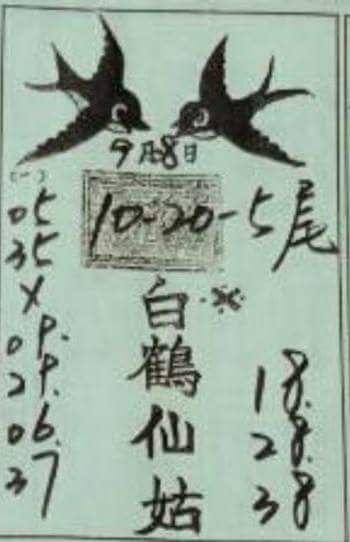 9月8日
(一)
10-20-5尾
05
35
X
09.
29.
06.
37
白鶴仙姑
18.
28.
38